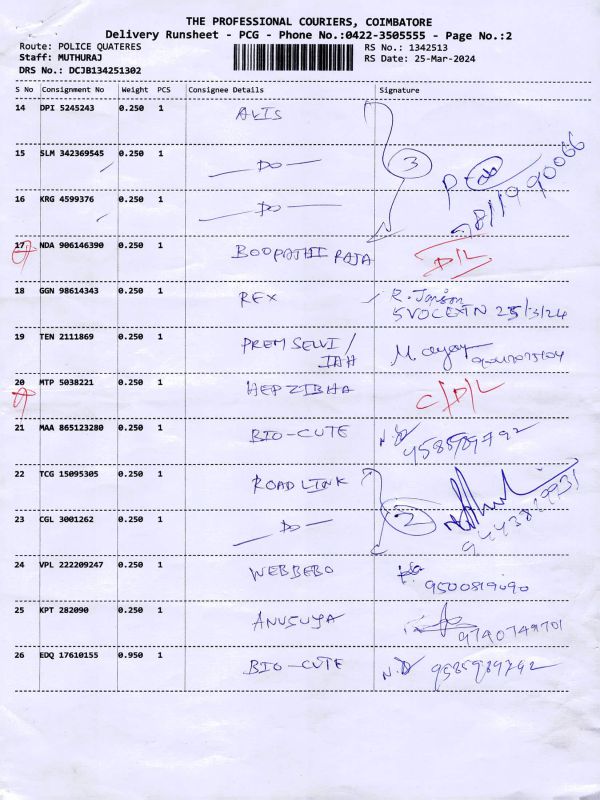 THE PROFESSIONAL COURIERS, COIMBATORE
Delivery Runsheet - PCG - Phone No.:0422-3505555 - Page No.:2
Route: POLICE QUATERES RS No.: 1342513
Staff: MUTHURAJ RS Date: 25-Mar-2024
DRS No.: DCJB134251302
S No Consignment No Weight PCS Consignee Details Signature
14 DPI 5245243 0.250 1 AVIS
15 SLM 342369545 0.250 1 — Do — 3
16 KRG 4599376 0.250 1 — Do —
17 NDA 906146390 0.250 1 BOOPATHI RAJA D/L
18 GGN 98614343 0.250 1 REX R. Jonson
SVOCEXTN 25/3/24
19 TEN 2111869 0.250 1 PREM SELVI /
20 MTP 5038221 0.250 1 HEPZIBHA C/D/L
21 MAA 865123280 0.250 1 BIO-CUTE
22 TCG 15095305 0.250 1 ROADLINK
23 CGL 3001262 0.250 1 — Do — 2
24 VPL 222209247 0.250 1 WEBBEBO 9500819090
25 KPT 282090 0.250 1 ANUSUYA 9790749701
26 EDQ 17610155 0.950 1 BIO-CUTE N.D